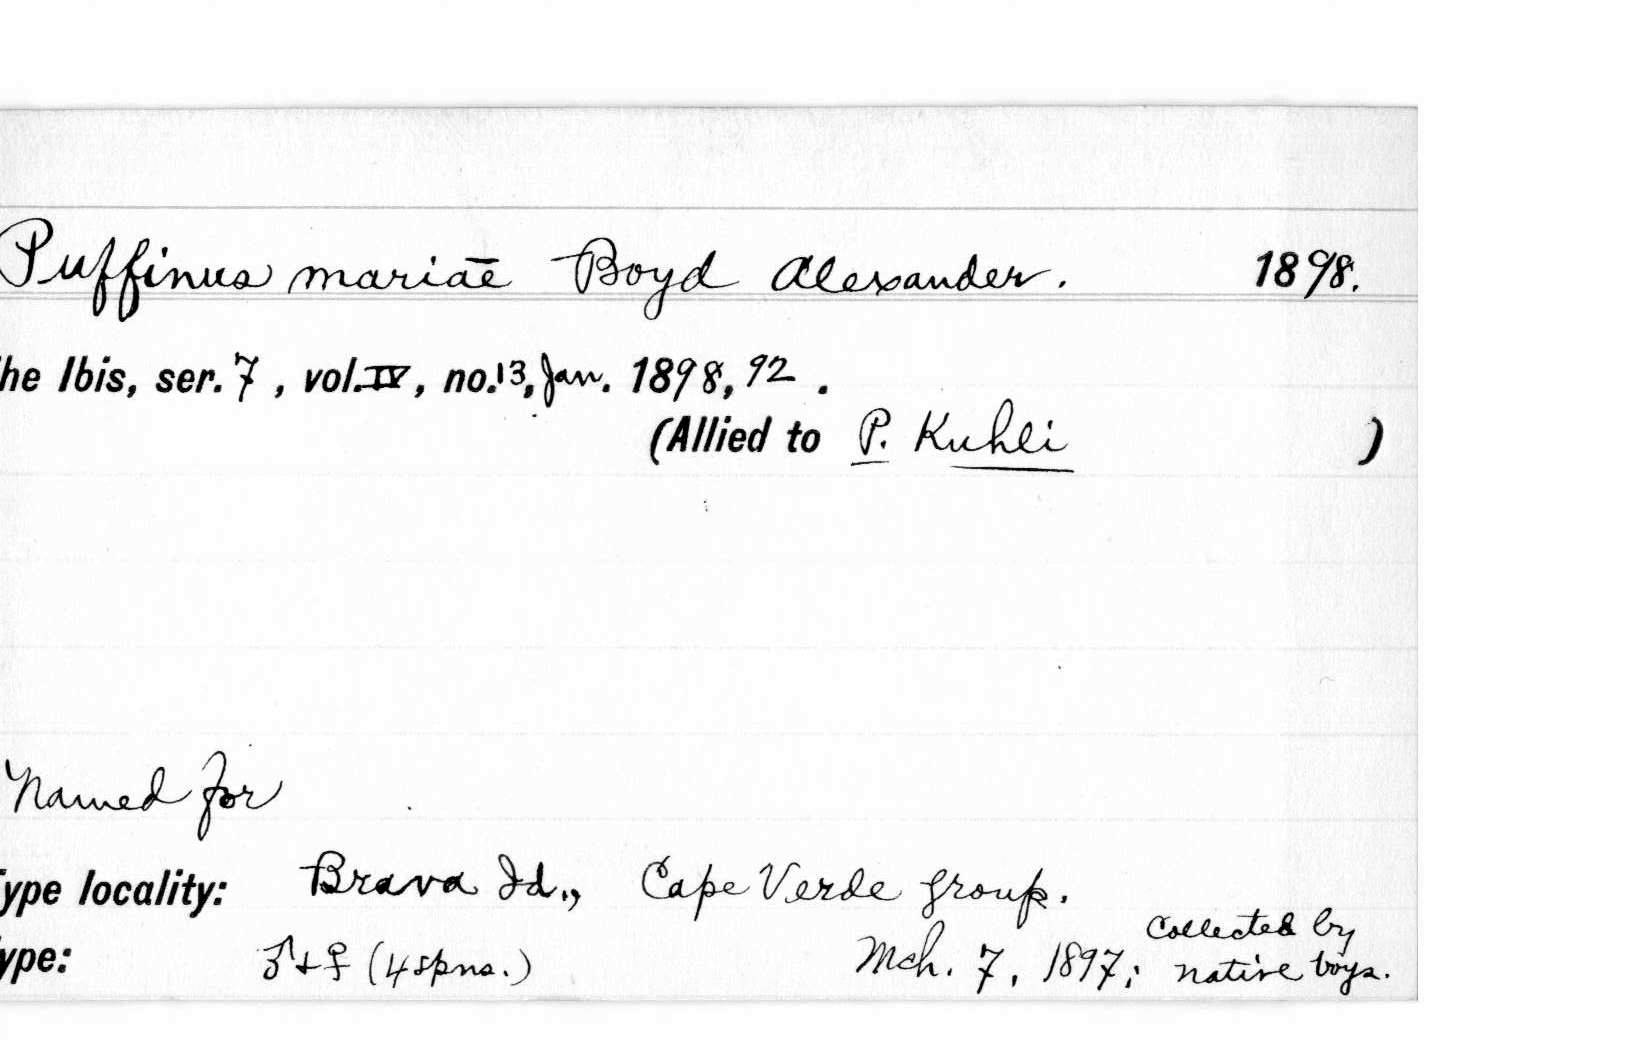 Puffinus mariae Boyd Alexander. 1898.
he Ibis, ser. 7, vol. IV, no. 13, Jan. 1898, 92.
(Allied to P. Kuhli )
Named for
ype locality: Brava Id., Cape Verde group.
ype: ♂ + ♀ (4 spns.) Mch. 7, 1897; collected by
native boys.